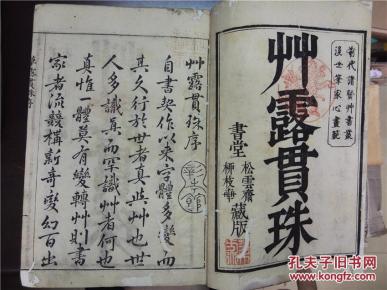 前代諸賢艸書叢
後世筆家心畫範
艸露貫珠
書堂
松雲齋
柳枝軒
藏版
艸露貫珠序
彰考館
自書契作以來字體多變而
其久行於世者真與艸也世
人多識真而罕識艸者何也
真惟一體莫有變轉艸則書
家者流競構新奇變幻百出